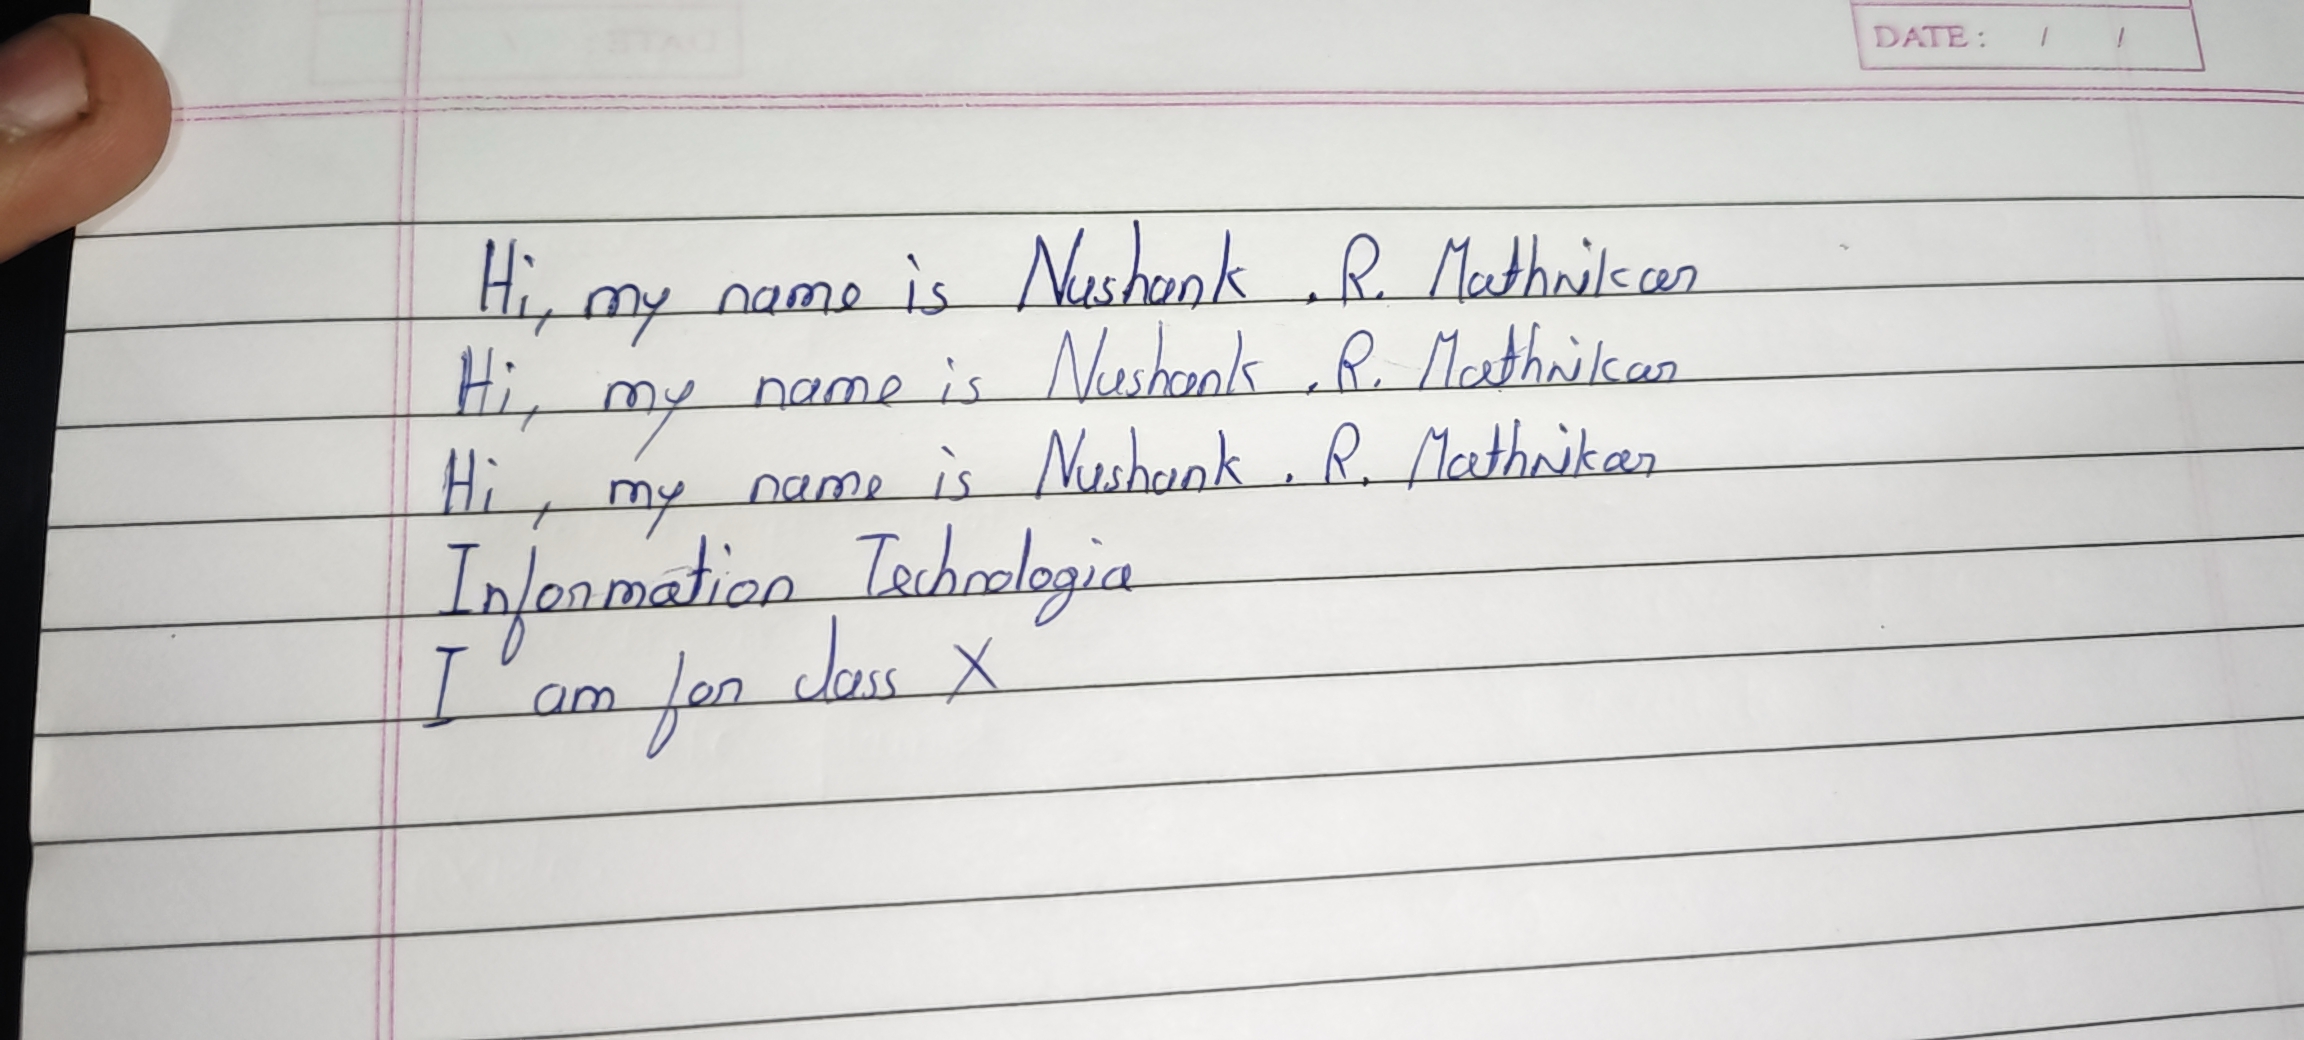 DATE: / /
Hi, my name is Nushank . R. Mathnikar
Hi, my name is Nushank . R. Mathnikar
Hi, my name is Nushank . R. Mathnikar
Information Technologia
I am for class X